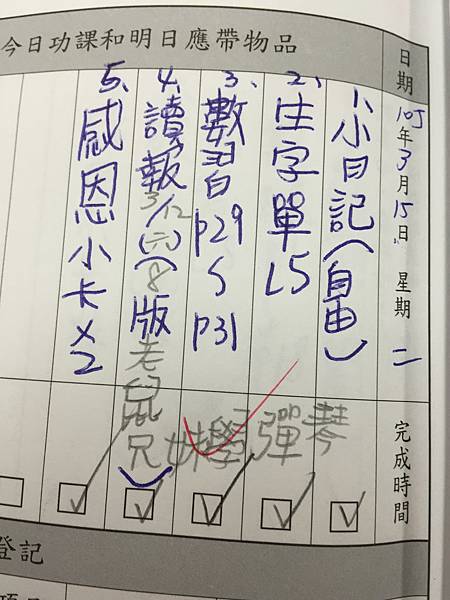 今日功課和明日應帶物品
日期105年3月15日 星期二
完成時間
1、小日記(自由)
2、生字單L5
3、數習P29
S
P31
4、讀報3/12(六)(8版
老鼠兄妹學彈琴)
5、感恩小卡x2
登記